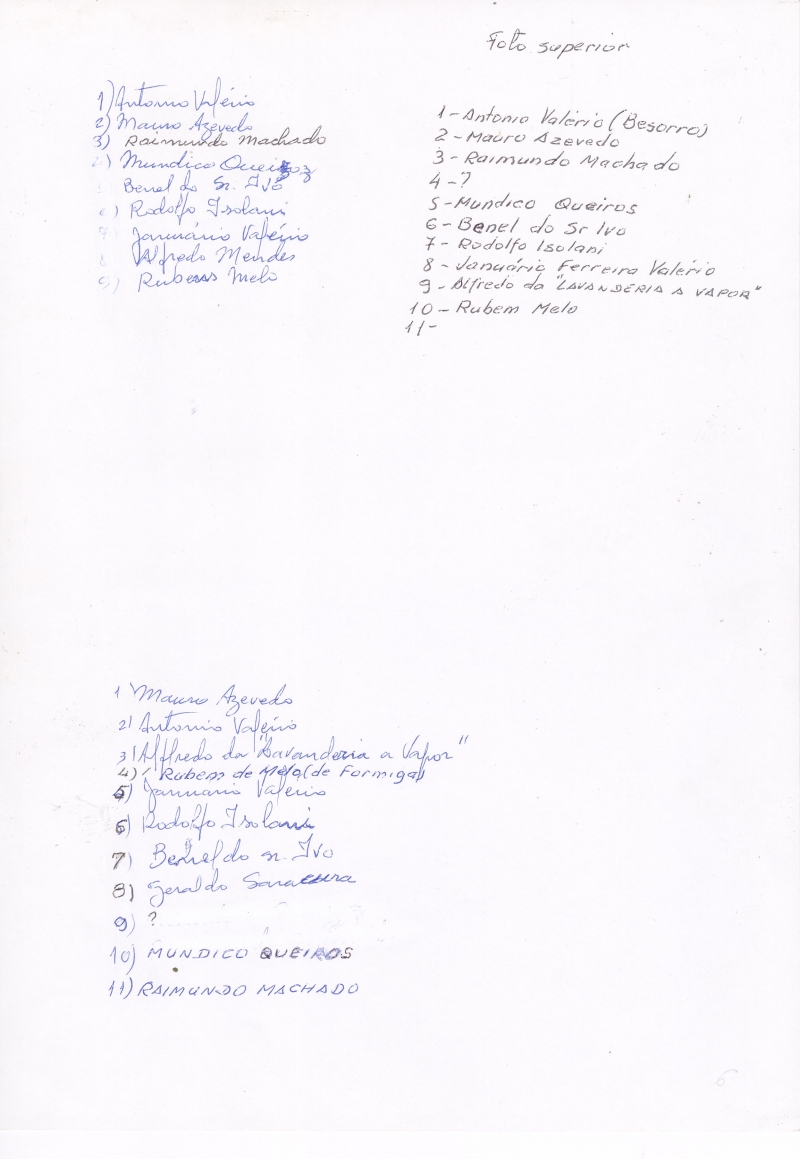 Foto superior
1) Antonio Valério
2) Mauro Azevedo
3) Raimundo Machado
4) Mundico Queiroz
Benel do Sr. Ivo
6) Rodolfo Isolani
7) Januário Valério
8 Alfredo Mendes
9) Rubens Melo
1 - Antonio Valério (Besorro)
2 - Mauro Azevedo
3 - Raimundo Machado
4 - ?
5 - Mundico Queiros
6 - Benel do Sr Ivo
7 - Rodolfo Isolani
8 - Januário Ferreira Valério
9 - Alfredo da "LAVANDERIA A VAPOR"
10 - Rubem Melo
11 -
1) Mauro Azevedo
2) Antonio Valério
3) Alffredo da "Lavanderia a Vapor"
4) Rubens de Melo (de Formiga)
5) Januario Valério
6) Rodolfo Isolani
7) Benel do sr. Ivo
8) Geraldo Saracura
9) ?
10) MUNDICO QUEIROS
11) RAIMUNDO MACHADO
6